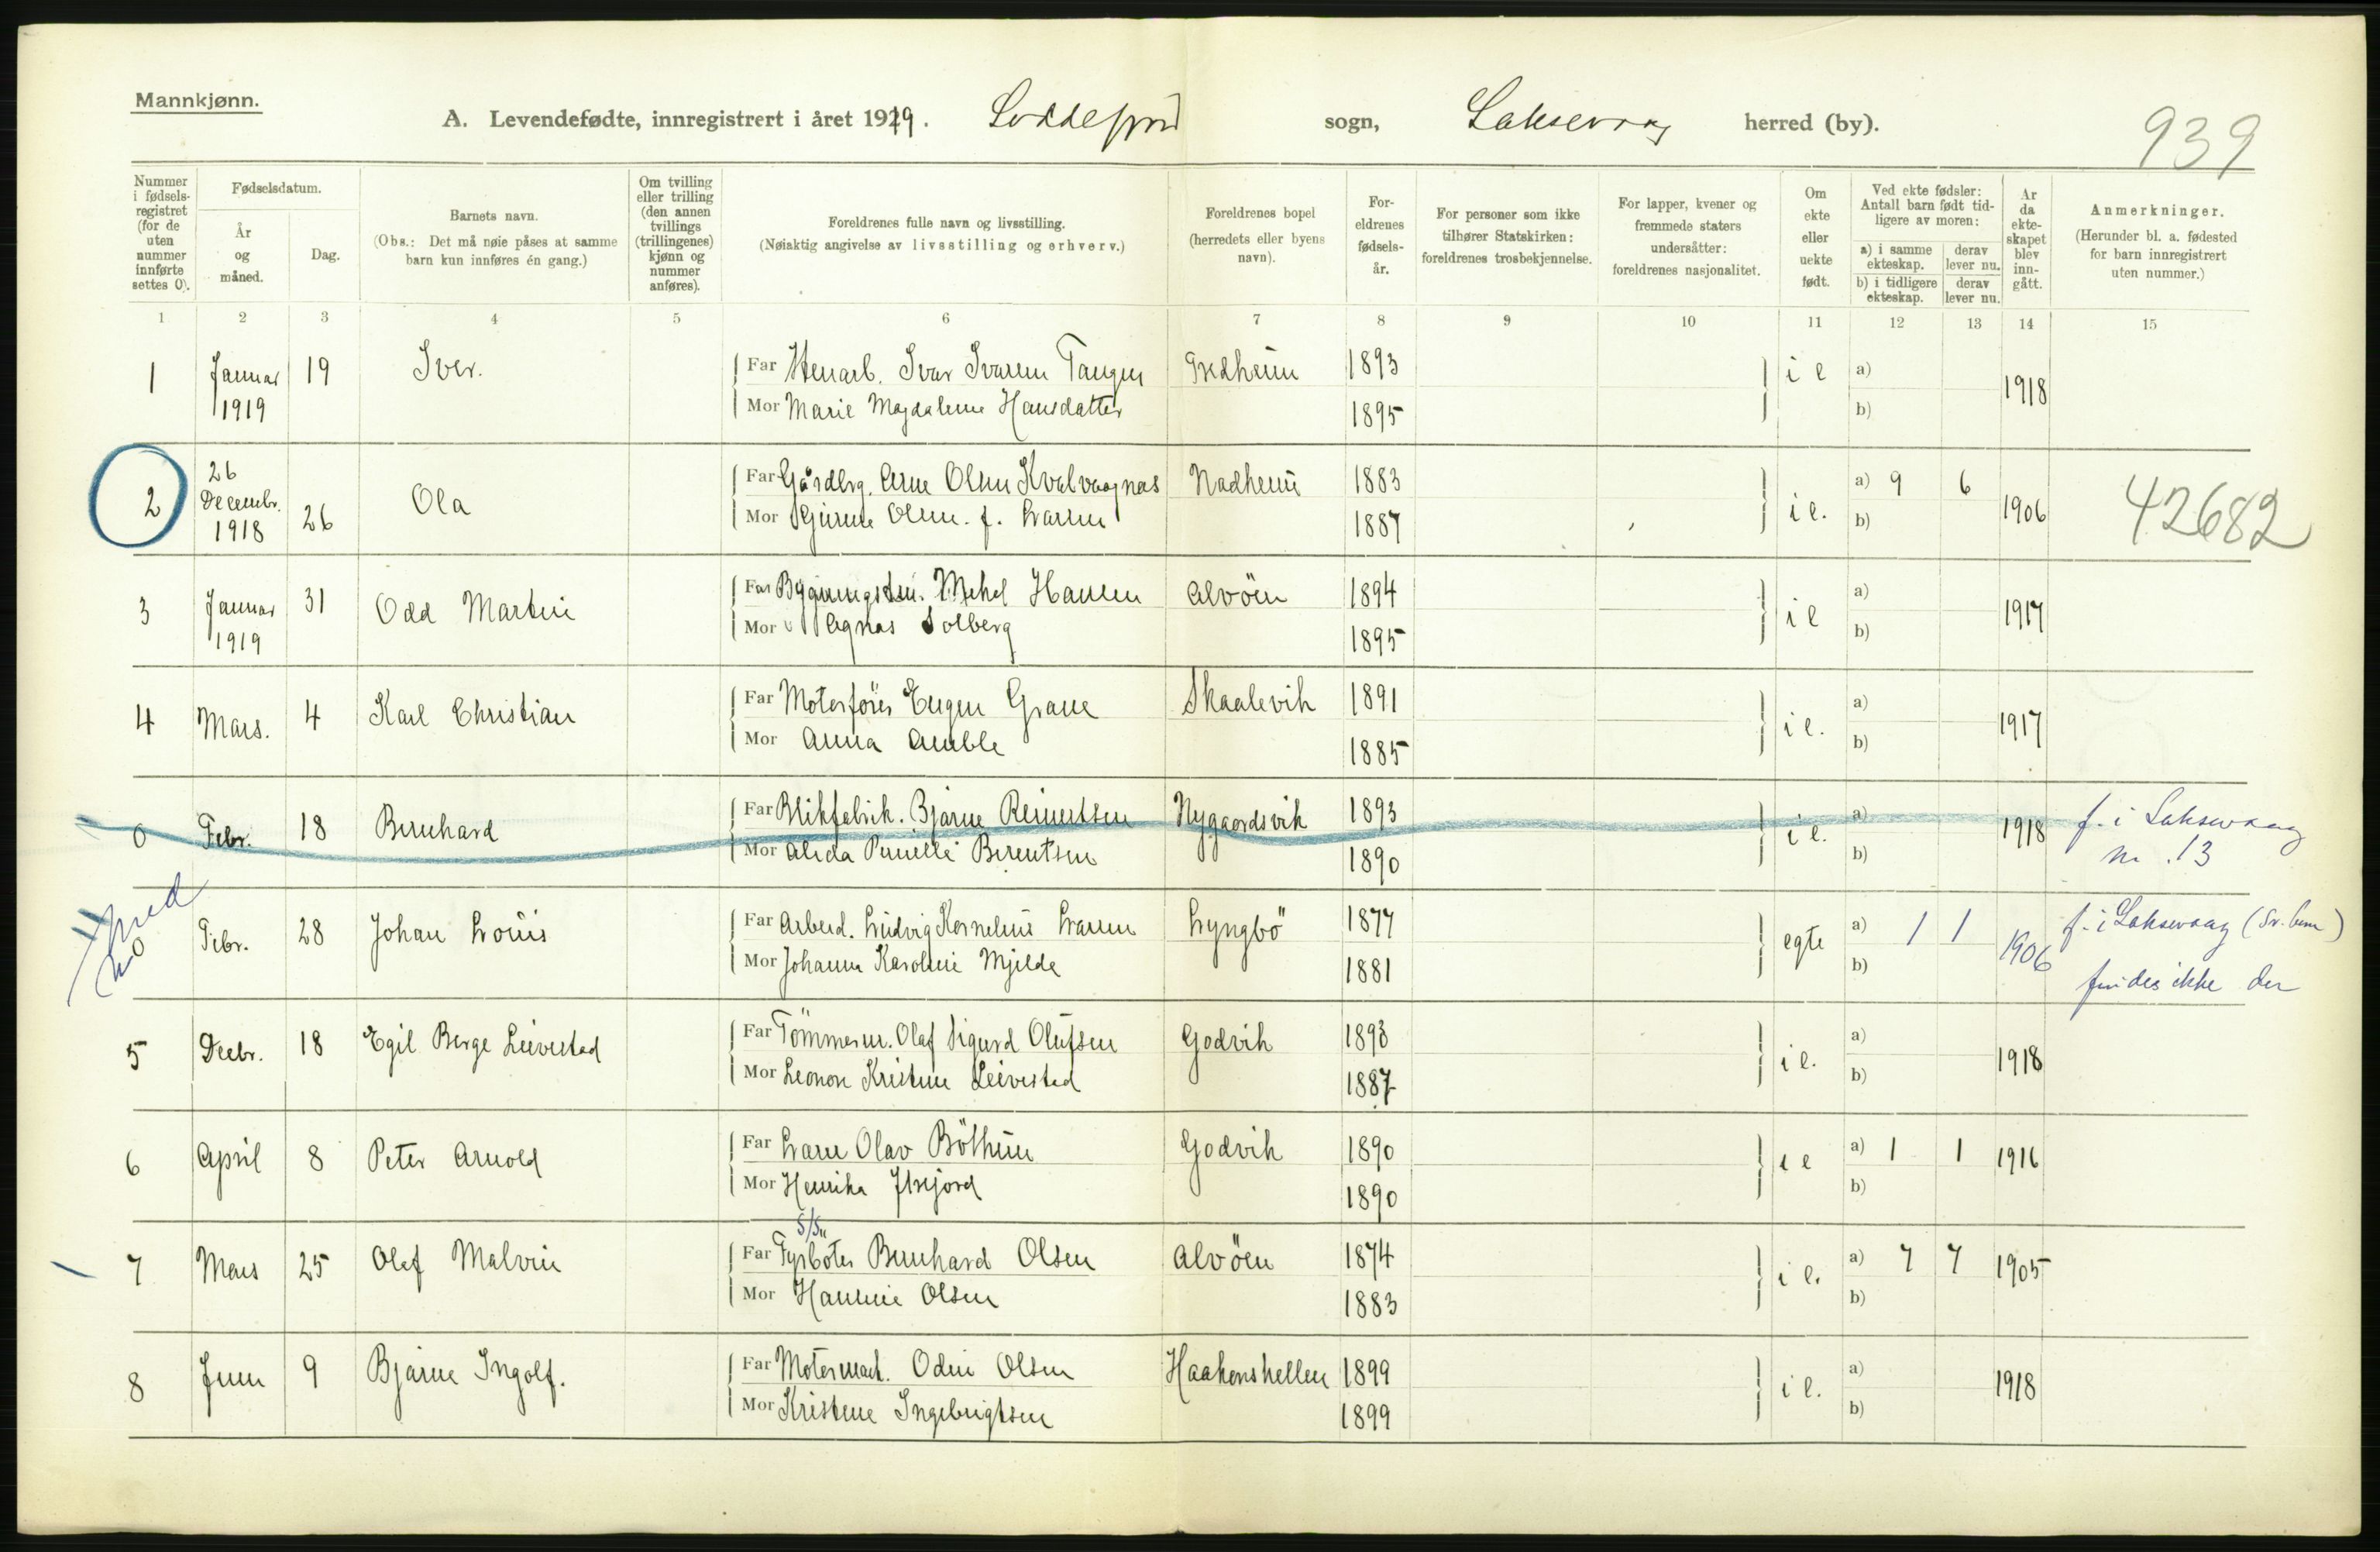 Mannkjønn.
A. Levendefødte, innregistrert i året 1919. Loddefjord sogn, Laksevaag herred (by).
939
Nummer i fødsels-registret (for de uten nummer innførte settes 0).
Fødselsdatum.
År og måned.
Dag.
Barnets navn.
(Obs.: Det må nøie påses at samme barn kun innføres én gang.)
Om tvilling eller trilling (den annen tvillings (trillingenes) kjønn og nummer anføres).
Foreldrenes fulle navn og livsstilling.
(Nøiaktig angivelse av livsstilling og erhverv.)
Foreldrenes bopel (herredets eller byens navn).
For-eldrenes fødsels-år.
For personer som ikke tilhører Statskirken: foreldrenes trosbekjennelse.
For lapper, kvener og fremmede staters undersåtter: foreldrenes nasjonalitet.
Om ekte eller uekte født.
Ved ekte fødsler: Antall barn født tid-ligere av moren:
a) i samme ekteskap.
derav lever nu.
b) i tidligere ekteskap.
derav lever nu.
År da ekte-skapet blev inn-gått.
Anmerkninger.
(Herunder bl. a. fødested for barn innregistrert uten nummer.)
1 2 3 4 5 6 7 8 9 10 11 12 13 14 15
1 Januar 1919 19 Iver. Far Ivar Ivarsen Tangen 1893 i e a) 1918
Mor Marie Magdalene Hansdatter 1895 b)
2 26 Decembr. 1918 26 Ola Far Gårdbrg. Arne Olsen Kvalvaagnes Nadheim 1883 i e. a) 9 6 1906 42682
Mor Gurine Olsen. f. Larsen 1887 b)
3 Januar 1919 31 Odd Martin Far Mikel Hansen Alvöen 1894 i e a) 1917
Mor Agnas Solberg 1895 b)
4 Mars. 4 Karl Christian Far Motorförer Eugen Graue Skaalevik 1891 i e. a) 1917
Mor Anna Amble 1885 b)
0 Febr. 18 Bernhard Far Blikfabrik. Bjarne Reinertsen Nygaardsvik 1893 i e. a) 1918 f. i Laksevaag
Mor Alida Pernille Berentsen 1890 b) nr. 13
0 Febr. 28 Johan Louis Far Arbeid. Ludvig Kornelius Larsen Lyngbö 1877 egte a) 1 1 1906 f. i Laksevaag
Mor Johanna Karoline Mjelde 1881 b) findes ikke der
5 Decbr. 18 Egil Berge Leivestad Far Tömmerm. Olaf Sigurd Olufsen Godvik 1893 i e. a) 1918
Mor Leonore Kristine Leivestad 1887 b)
6 April 8 Peter Arnold Far Lars Olav Böthun Godvik 1890 i e a) 1 1 1916
Mor Henrika 1890 b)
7 Mars 25 Olaf Malvin Far Fyrböter Bernhard Olsen Alvöen 1874 i e. a) 7 7 1905
Mor Hansine Olsen 1883 b)
8 Juni 9 Bjarne Ingolf. Far Motormask. Odin Olsen Haakonshellen 1899 i e. a) 1918
Mor Kristine Ingebrigtsen 1899 b)